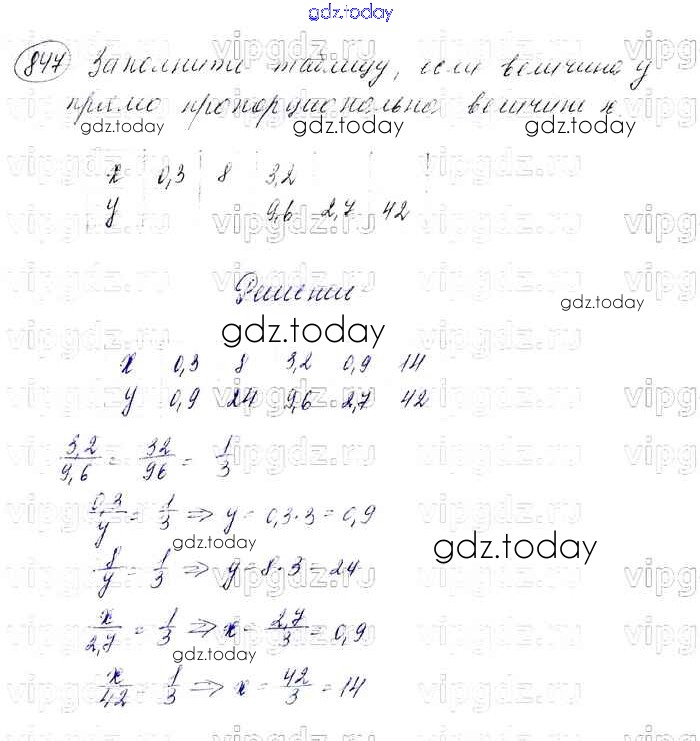 gdz.today
847 Заполните таблицу, если величина y
прямо пропорциональна величине x.
gdz.today gdz.today gdz.today
x 0,3 8 3,2
y 9,6 2,7 42
Решение
gdz.today
gdz.today
x 0,3 8 3,2 0,9 14
y 0,9 24 9,6 2,7 42
3,2/9,6 = 32/96 = 1/3
0,3/y = 1/3 ⇒ y = 0,3·3 = 0,9
gdz.today gdz.today
8/y = 1/3 ⇒ y = 8·3 = 24
x/2,7 = 1/3 ⇒ x = 2,7/3 = 0,9
gdz.today
x/42 = 1/3 ⇒ x = 42/3 = 14
vipgdz.ru